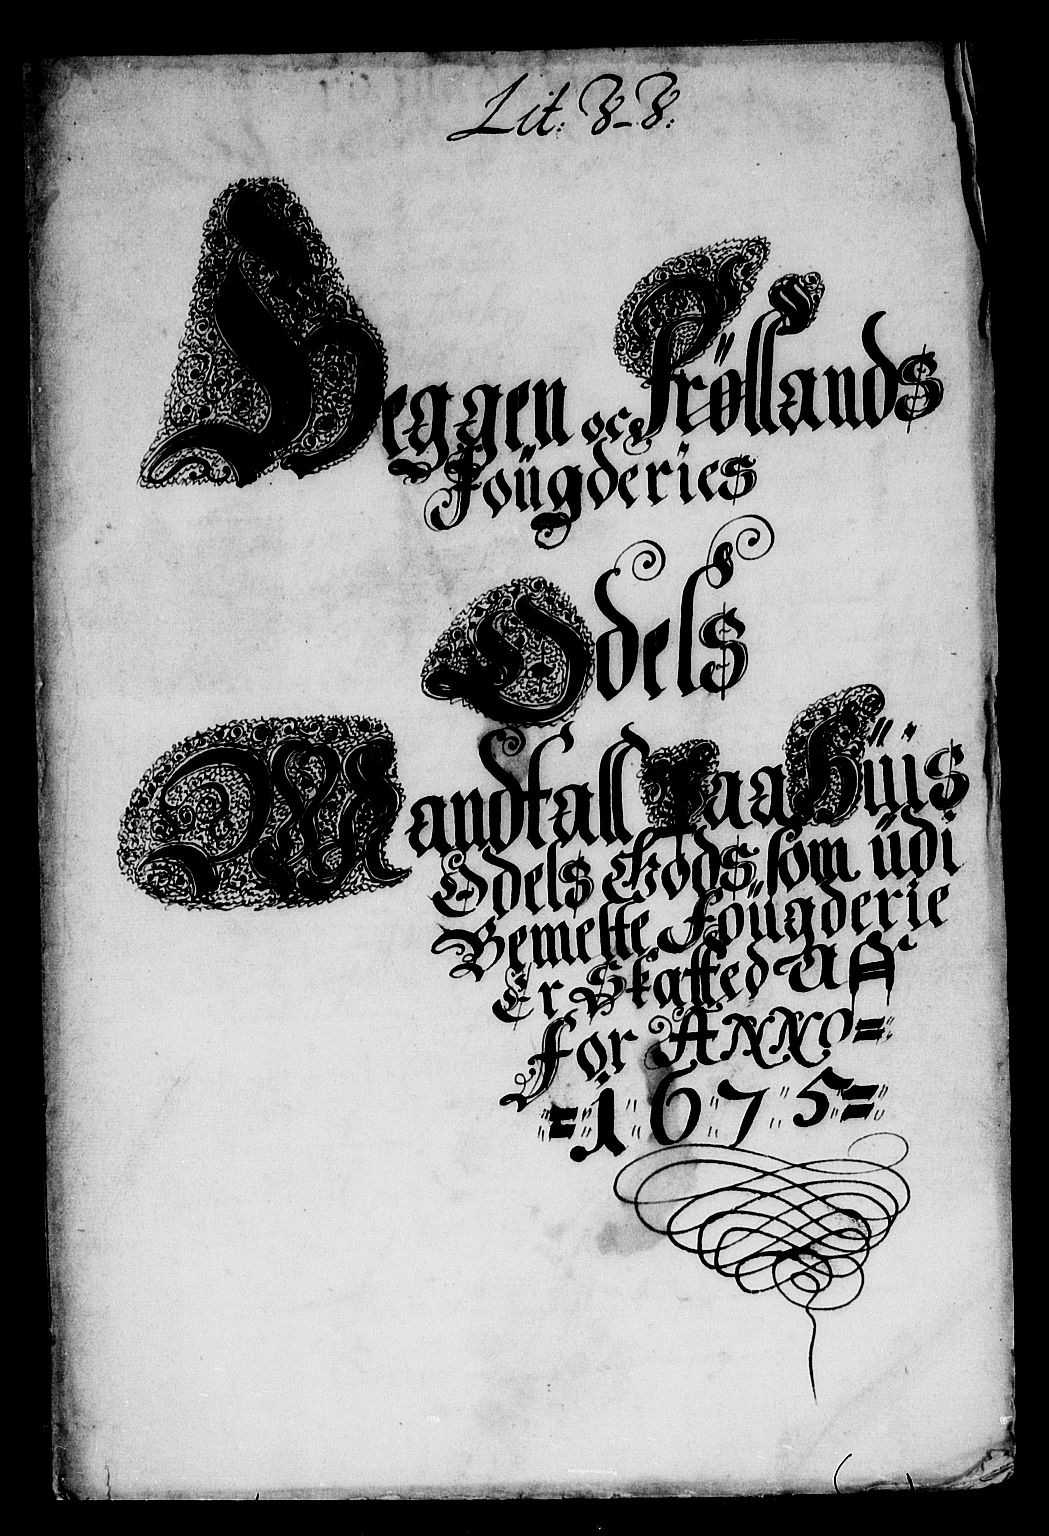 Lit: B-B:
Heggen oc Frøllands
Foügderies
Odels
Mandtall Paa Hüüs
Odels Godß, som üdi
Bemelte Foügderie
Er Skatted Aff
for Anno=
=1675=